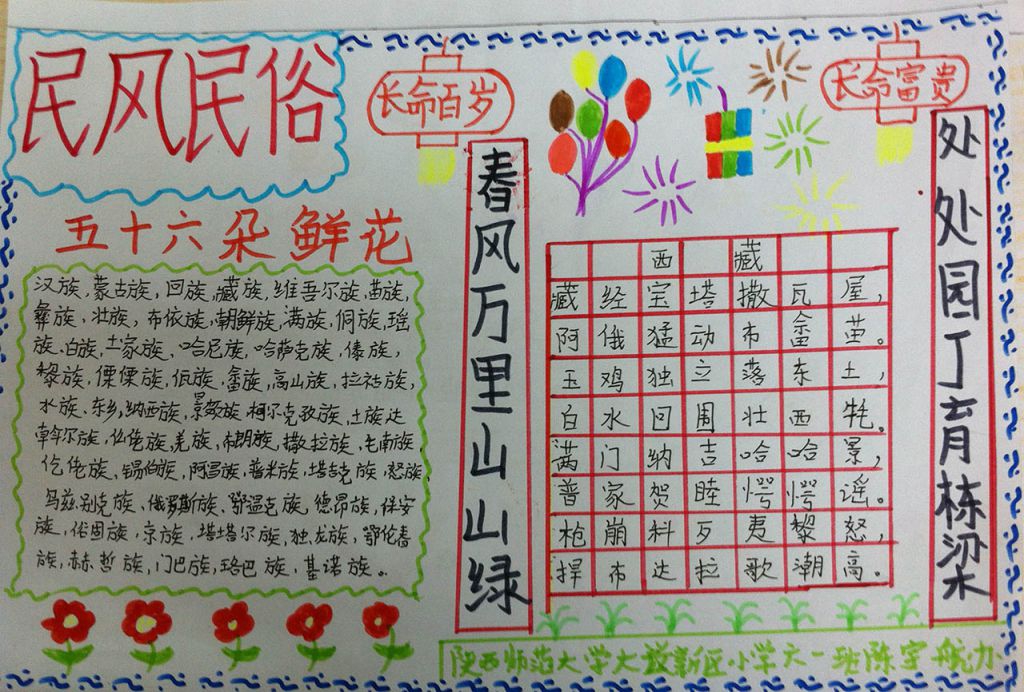 民风民俗
五十六朵鲜花
汉族,蒙古族,回族,藏族,维吾尔族,苗族,
彝族,壮族,布依族,朝鲜族,满族,侗族,瑶
族,白族,土家族、哈尼族,哈萨克族,傣族,
黎族,傈僳族,佤族,畲族,高山族,拉祜族,
水族、东乡,纳西族,景颇族,柯尔克孜族,土族达
斡尔族,仫佬族,羌族,布朗族,撒拉族,毛南族,
仡佬族,锡伯族,阿昌族,普米族,塔吉克族,怒族,
乌兹别克族,俄罗斯族、鄂温克族,德昂族,保安
族,裕固族,京族,塔塔尔族,独龙族,鄂伦春
族,赫哲族,门巴族,珞巴族,基诺族。
长命百岁
长命富贵
春风万里山山绿
处处园丁育栋梁
西藏
藏经宝塔撒瓦屋,
阿俄猛动布畲苗。
玉鸡独立落东土,
白水回围壮西牦。
满门纳吉哈哈景,
普家贺睦愕愕谣。
枪崩料歹夷黎怒,
捍布达拉歌潮高。
陕西师范大学大兴新区小学六一班陈宇航办